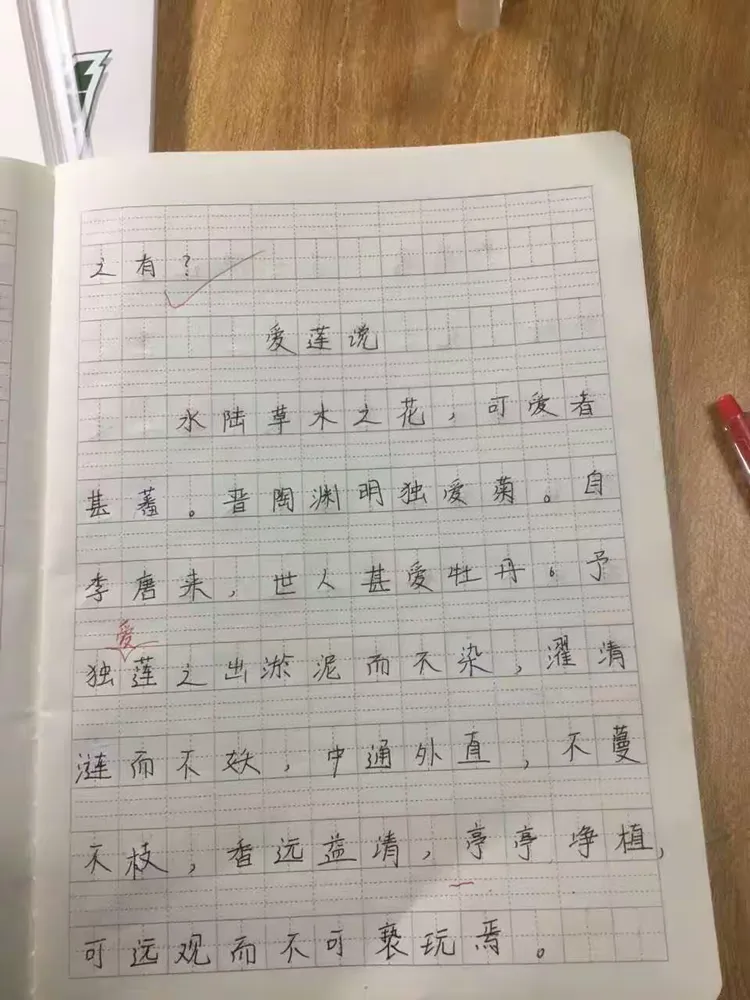 之有？
爱莲说
水陆草木之花，可爱者
甚蕃。晋陶渊明独爱菊。自
李唐来，世人甚爱牡丹。予
爱
独莲之出淤泥而不染，濯清
涟而不妖，中通外直，不蔓
不枝，香远益清，亭亭净植，
可远观而不可亵玩焉。